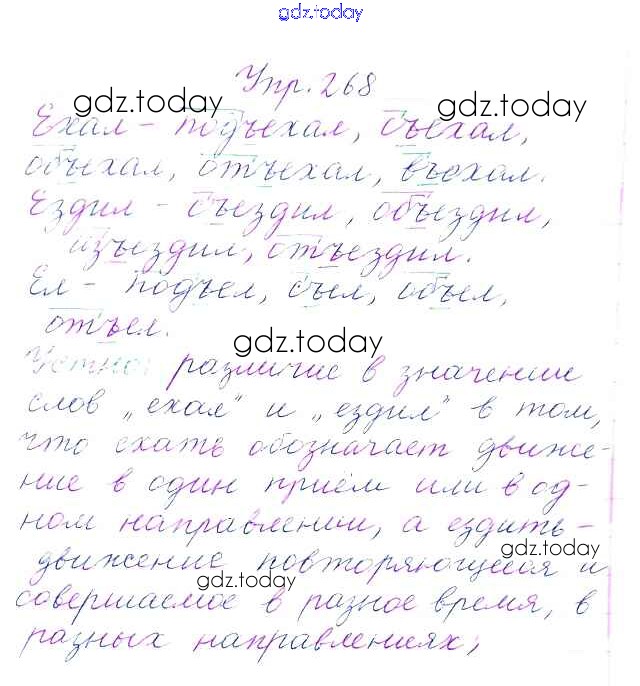 gdz.today
Упр. 268
gdz.today gdz.today
Ехал – подъехал, съехал,
объехал, отъехал, въехал.
Ездил – съездил, объездил,
изъездил, отъездил.
Ел – подъел, съел, объел,
отъел.
gdz.today
Устно: различие в значении
слов „ехал" и „ездил" в том,
что ехать обозначает движе-
ние в один приём или в од-
ном направлении, а ездить –
gdz.today
движение повторяющееся и
gdz.today
совершаемое в разное время, в
разных направлениях;